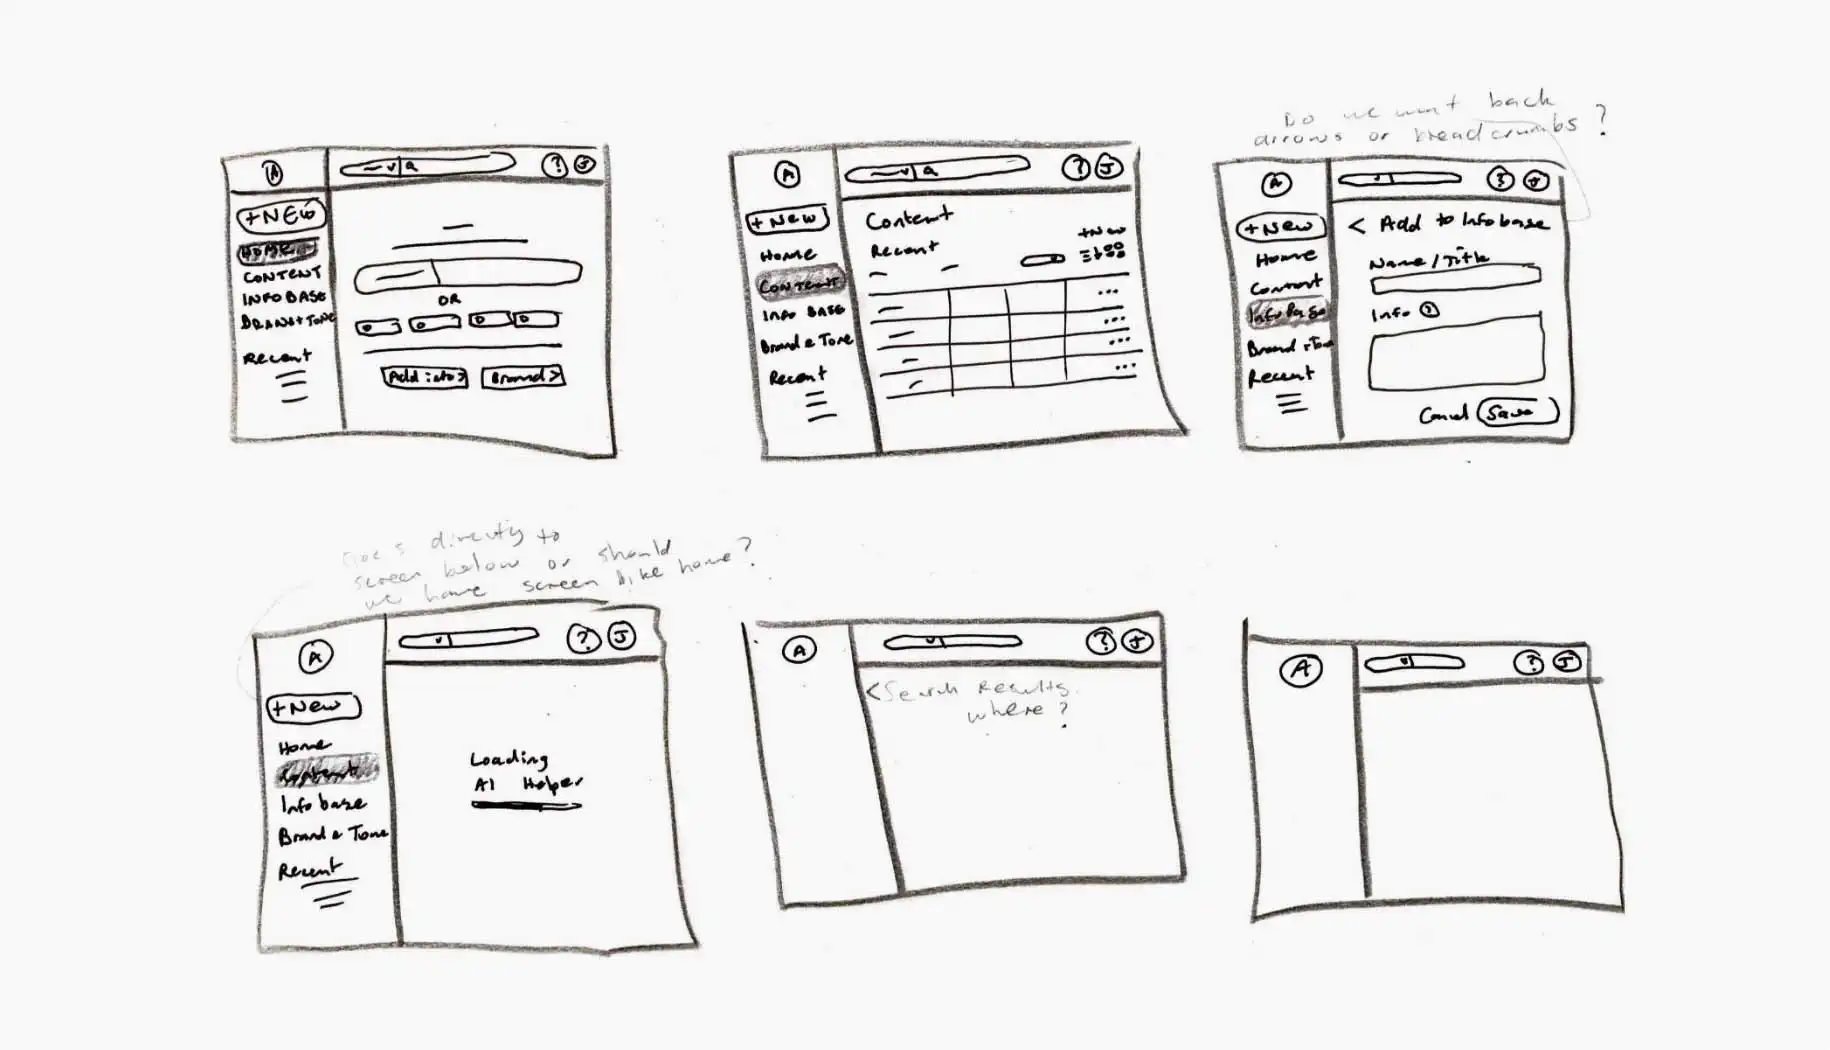 Do we want back
arrows or breadcrumbs?
A
? J
+NEW
HOME
CONTENT
INFO BASE
BRAND+TONE
Recent
OR
Add info >
Brand >
A
? J
+New
Home
Content
Info Base
Brand & Tone
Recent
Content
Recent
+New
A
? J
+New
Home
Content
Info Base
Brand + Tone
Recent
< Add to Infobase
Name/Title
Info ?
Cancel Save
Goes directly to
screen below or should
we have screen like home?
A
? J
+New
Home
Content
Info base
Brand & Tone
Recent
Loading
AI Helper
A
? J
<Search Results.
where?
A
? J